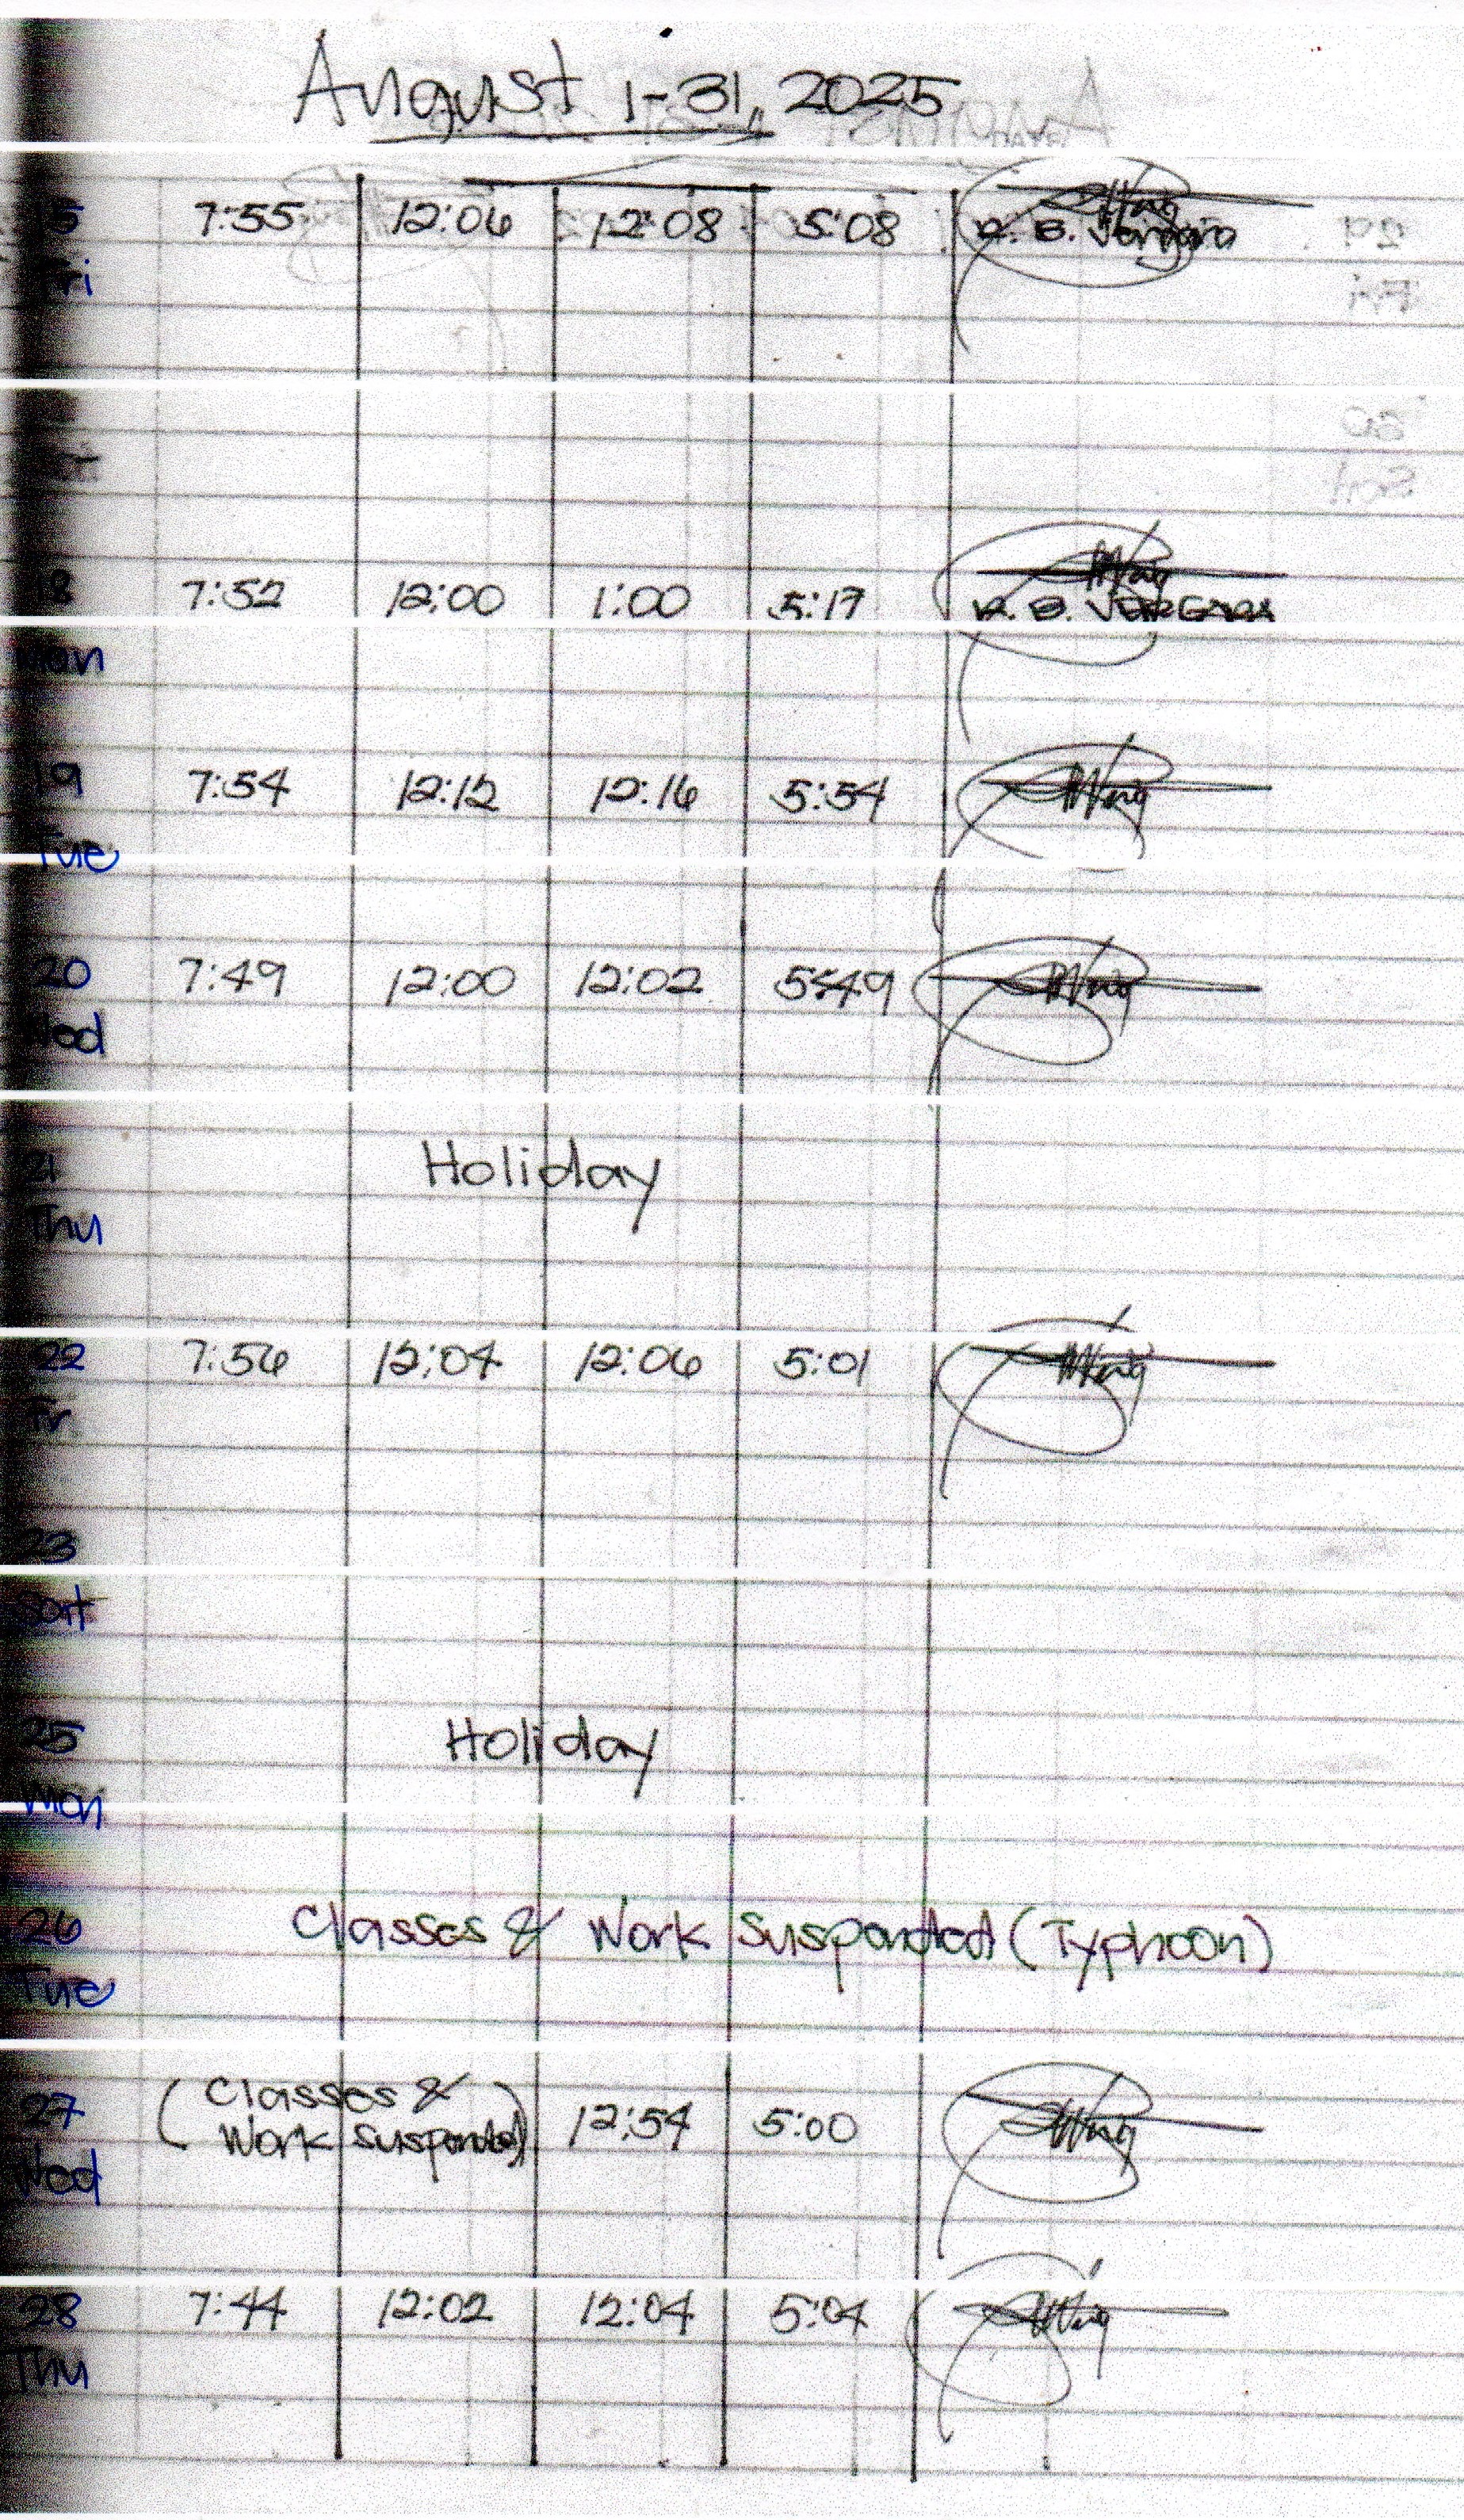 August 1-31, 2025
15 7:55 12:06 12:08 5:08 R. B. Vergara
Fri
18 7:52 12:00 1:00 5:17 R. B. VERGARA
Mon
19 7:54 12:12 12:16 5:54
Tue
20 7:49 12:00 12:02 5:49
Wed
21 Holiday
Thu
22 7:56 12:04 12:06 5:01
Fr
23
Sat
25 Holiday
Mon
26 Classes & Work Suspended (Typhoon)
Tue
(Classes &
27 Work Suspended) 12:54 5:00
Wed
28 7:44 12:02 12:04 5:04
Thu